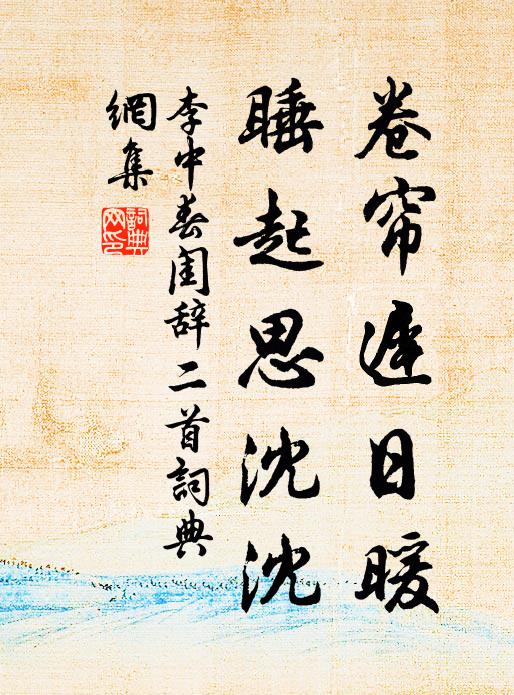 卷帘遲日暖
睡起思沈沈
李中春闺辞二首詞典
網集
詞典
网印